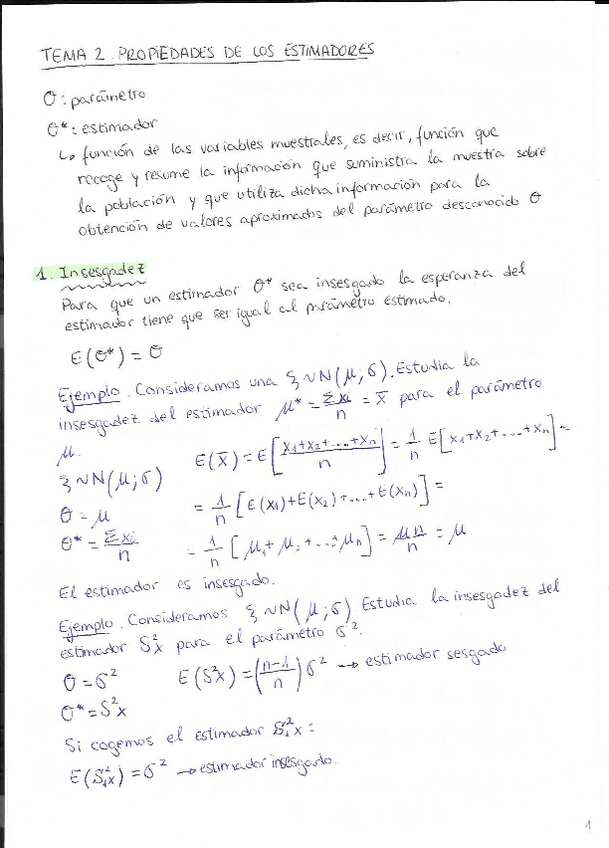 TEMA 2. PROPIEDADES DE LOS ESTIMADORES
θ: parámetro
θ*: estimador
↳ función de las variables muestrales, es decir, función que
recoge y resume la información que suministra la muestra sobre
la población y que utiliza dicha información para la
obtención de valores aproximados del parámetro desconocido θ
1. Insesgadez
Para que un estimador θ* sea insesgado la esperanza del
estimador tiene que ser igual al parámetro estimado.
E(θ*) = θ
Ejemplo. Consideramos una ξ ~ N(μ; σ). Estudia la
insesgadez del estimador μ* = Σxi/n = x̄ para el parámetro
μ.
E(x̄) = E[(x1+x2+...+xn)/n] = 1/n E[x1+x2+...+xn] =
ξ ~ N(μ; σ)
= 1/n [E(x1)+E(x2)+...+E(xn)] =
θ = μ
θ* = Σxi/n
= 1/n [μ1+μ2+...+μn] = μn/n = μ
El estimador es insesgado.
Ejemplo. Consideramos ξ ~ N(μ; σ). Estudia la insesgadez del
estimador S²x para el parámetro σ².
θ = σ² E(S²x) = ((n-1)/n) σ² → estimador sesgado
θ* = S²x
Si cogemos el estimador S₁²x:
E(S₁²x) = σ² → estimador insesgado.
1